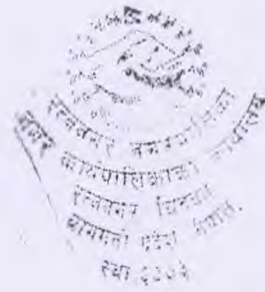 रत्ननगर नगरपालिका
नगर कार्यपालिकाको कार्यालय
रत्ननगर चितवन
बागमती प्रदेश नेपाल.